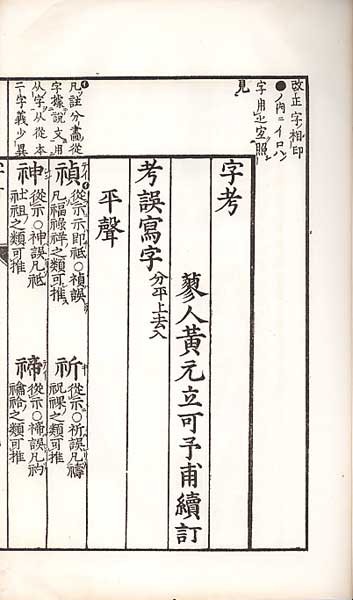 改正字相印
●ノ内ニイロハ
字用ヒ空照
見
凡註分畵從
字據説文用
从字从從本
二字義少異
字考
蓼人黃元立可予甫續訂
考誤寫字 分平上去入
平聲
禎 從示示即祗○禎誤
凡福祿祥之類可推
祈 從示○祈誤凡禱
祝祼之類可推
神 從示○神誤凡祗
社祖之類可推
禘 從示○禘誤凡礿
禴祫之類可推